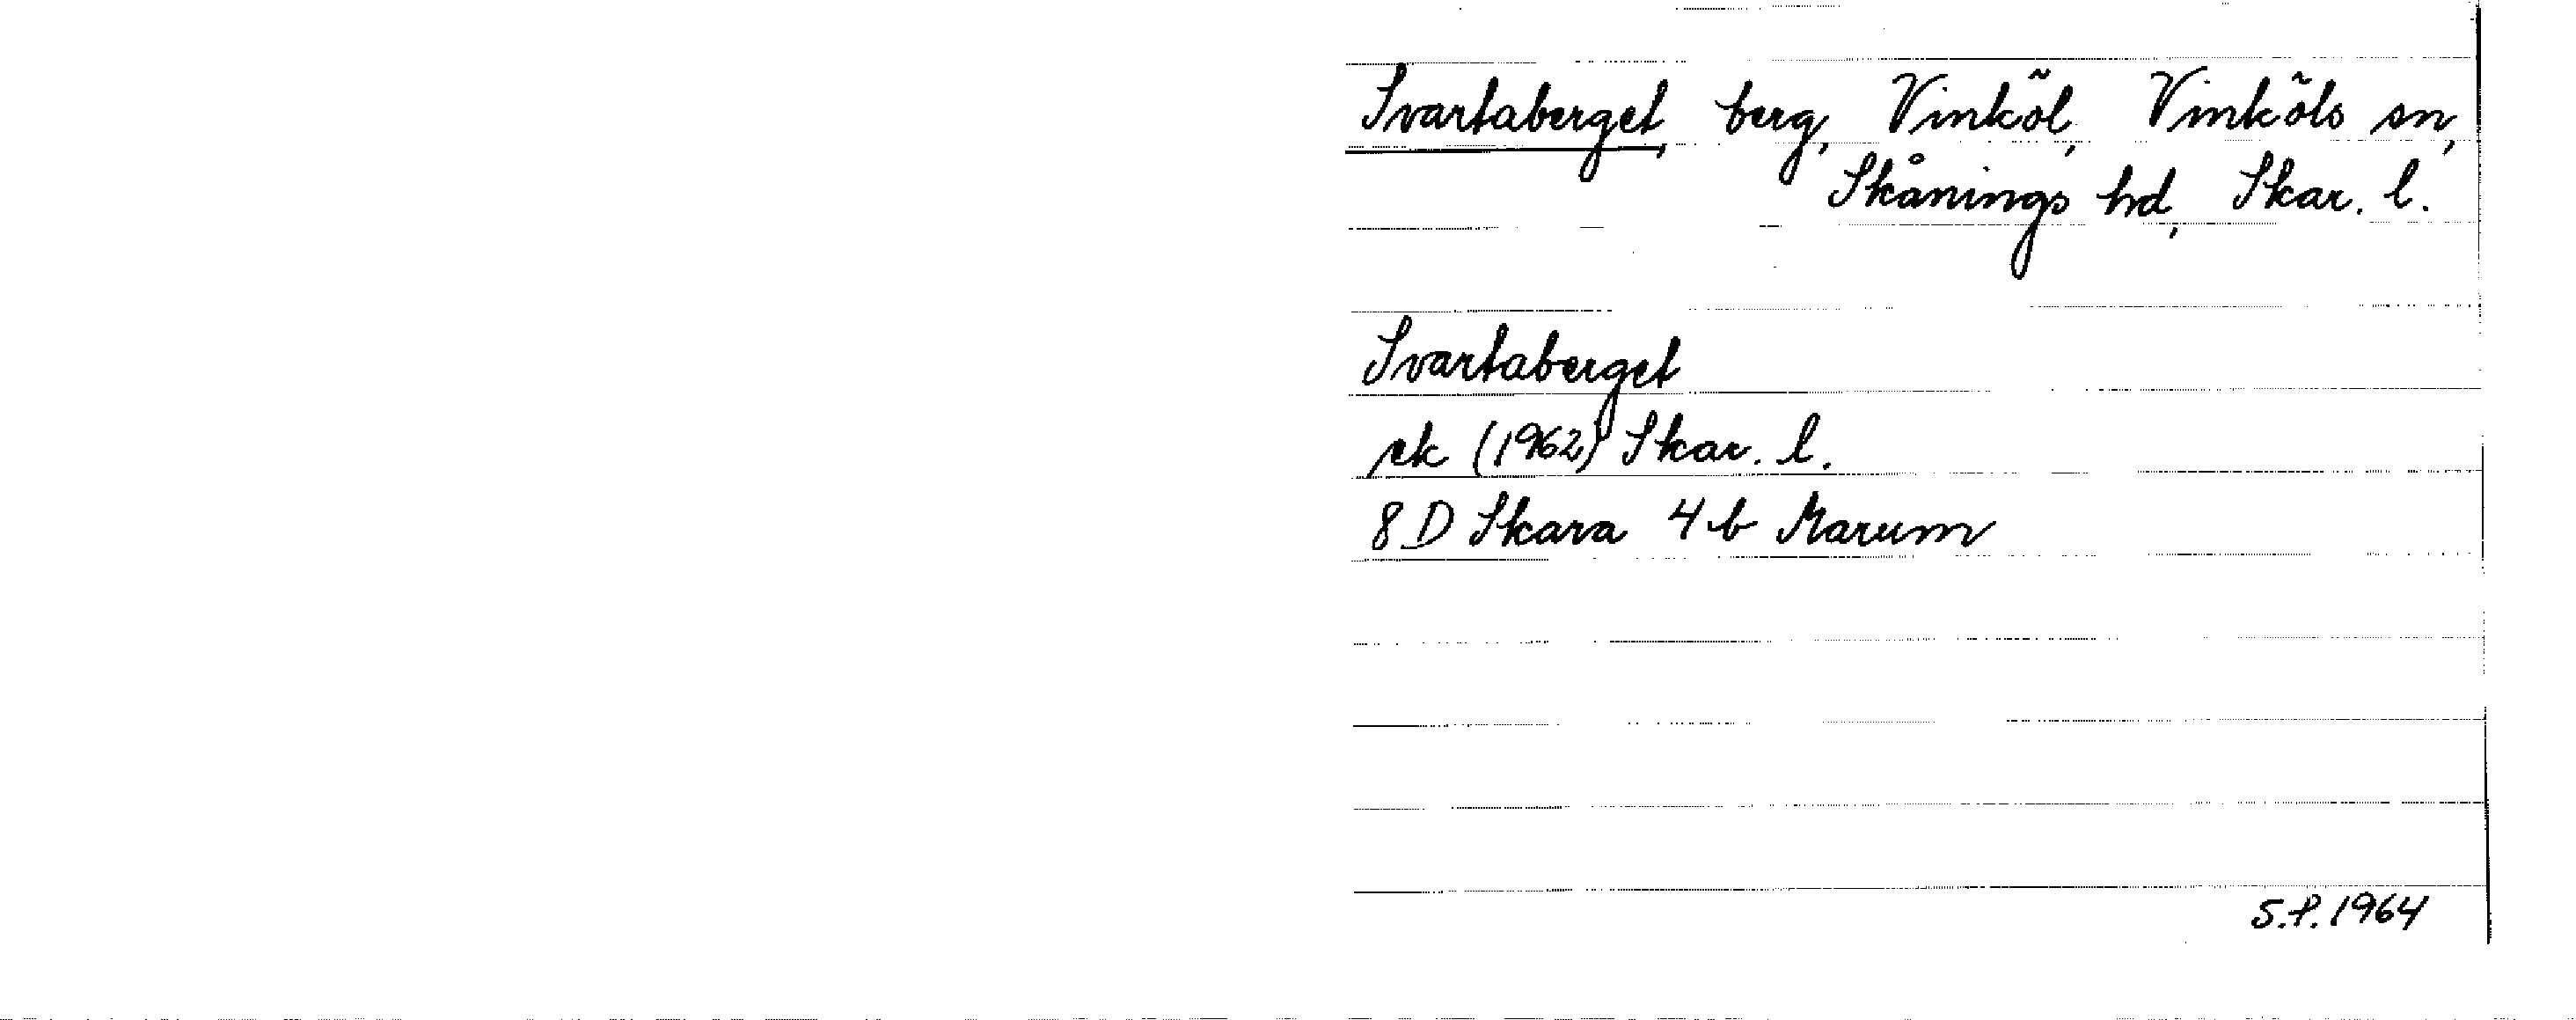 Svartaberget, berg, Vinköl, Vinköls sn,
Skånings hd, Skar. l.
Svartaberget
ek (1962) Skar. l.
8 D Skara 4 b Marum
S.P. 1964